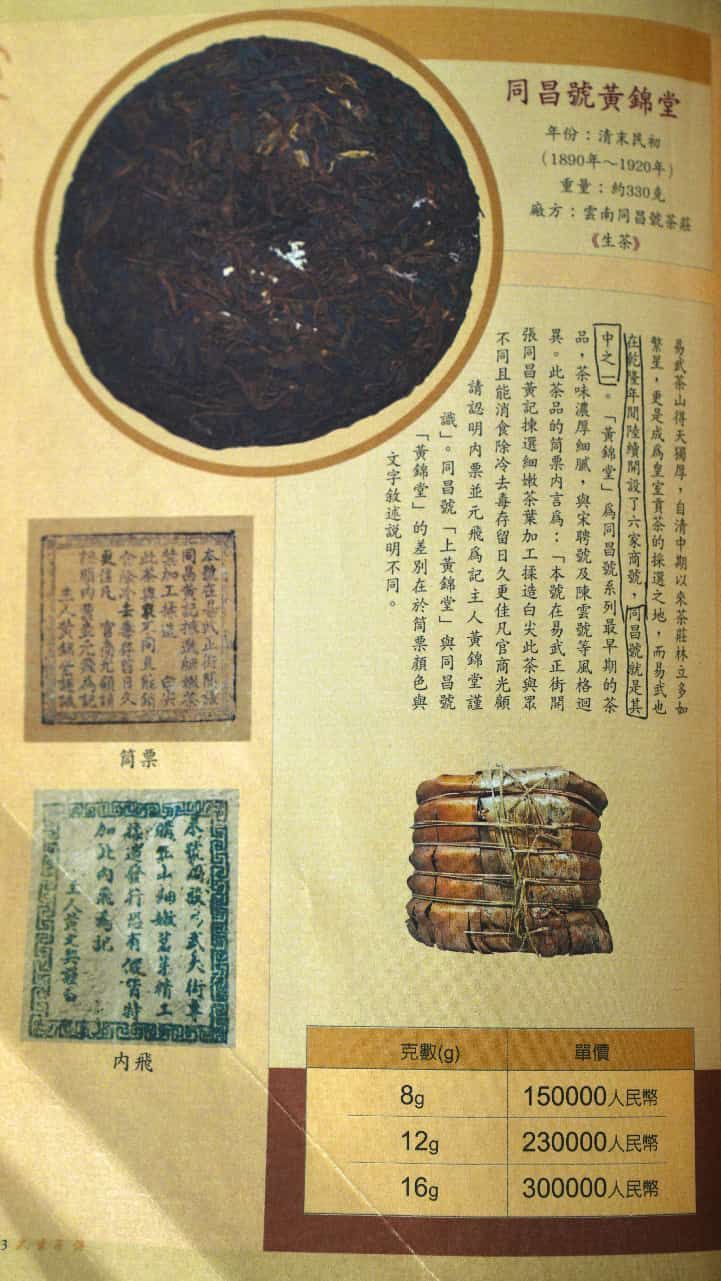 同昌號黃錦堂
年份：清末民初
（1890年～1920年）
重量：約330克
廠方：雲南同昌號茶莊
《生茶》
易武茶山得天獨厚，自清中期以來茶莊林立多如
繁星，更是成爲皇室貢茶的採選之地，而易武也
在乾隆年間陸續開設了六家商號，同昌號就是其
中之一。「黃錦堂」爲同昌號系列最早期的茶
品，茶味濃厚細膩，與宋聘號及陳雲號等風格迴
異。此茶品的筒票內言爲：「本號在易武正街開
張同昌黃記揀選細嫩茶葉加工揉造白尖此茶與眾
不同且能消食除冷去毒存留日久更佳凡官商光顧
請認明內票並元飛爲記主人黃錦堂謹
識」。同昌號「上黃錦堂」與同昌號
「黃錦堂」的差別在於筒票顏色與
文字敘述說明不同。
本號在易武正街開張
同昌黃記揀選細嫩茶
葉加工揉造白尖
此茶與眾不同且能消
食除冷去毒存留日久
更佳凡官商光顧請
認明內票並元飛為記
主人黃錦堂謹識
筒票
本號開設易武大街專
購正山細嫩茗芽精工
揉造發行恐有假冒特
加此內飛為記
主人黃文興謹白
內飛
克數(g) 單價
8g 150000人民幣
12g 230000人民幣
16g 300000人民幣
3